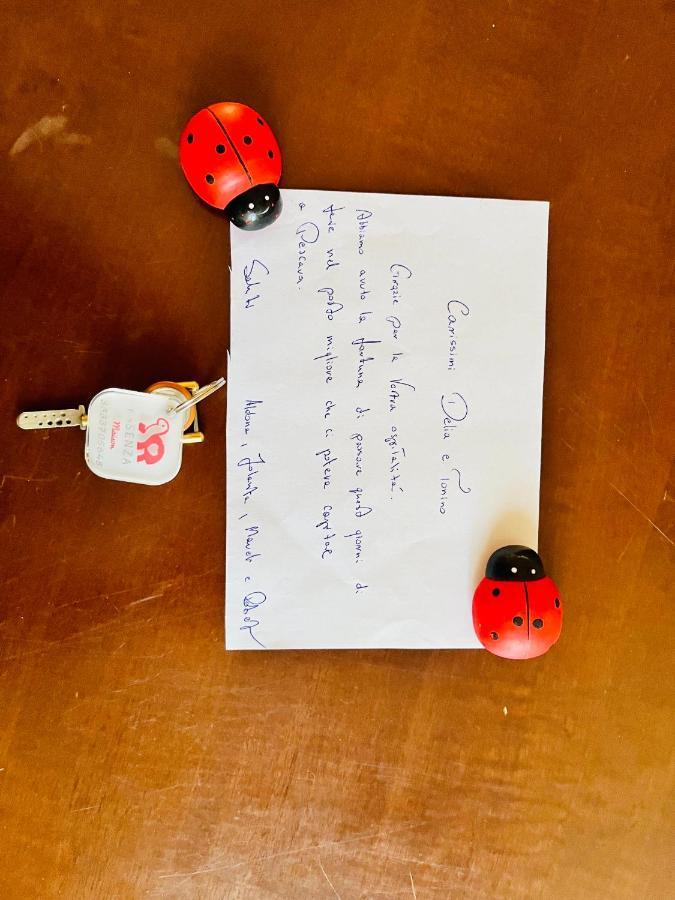 Carissimi Delia e Tonino
Grazie per la Vostra ospitalità.
Abbiamo avuto la fortuna di passare questi giorni di
ferie nel posto migliore che ci poteva capitare
a Pescara.
Saluti
Aldona, Jolanta, Marek e
ESSENZA
Maison